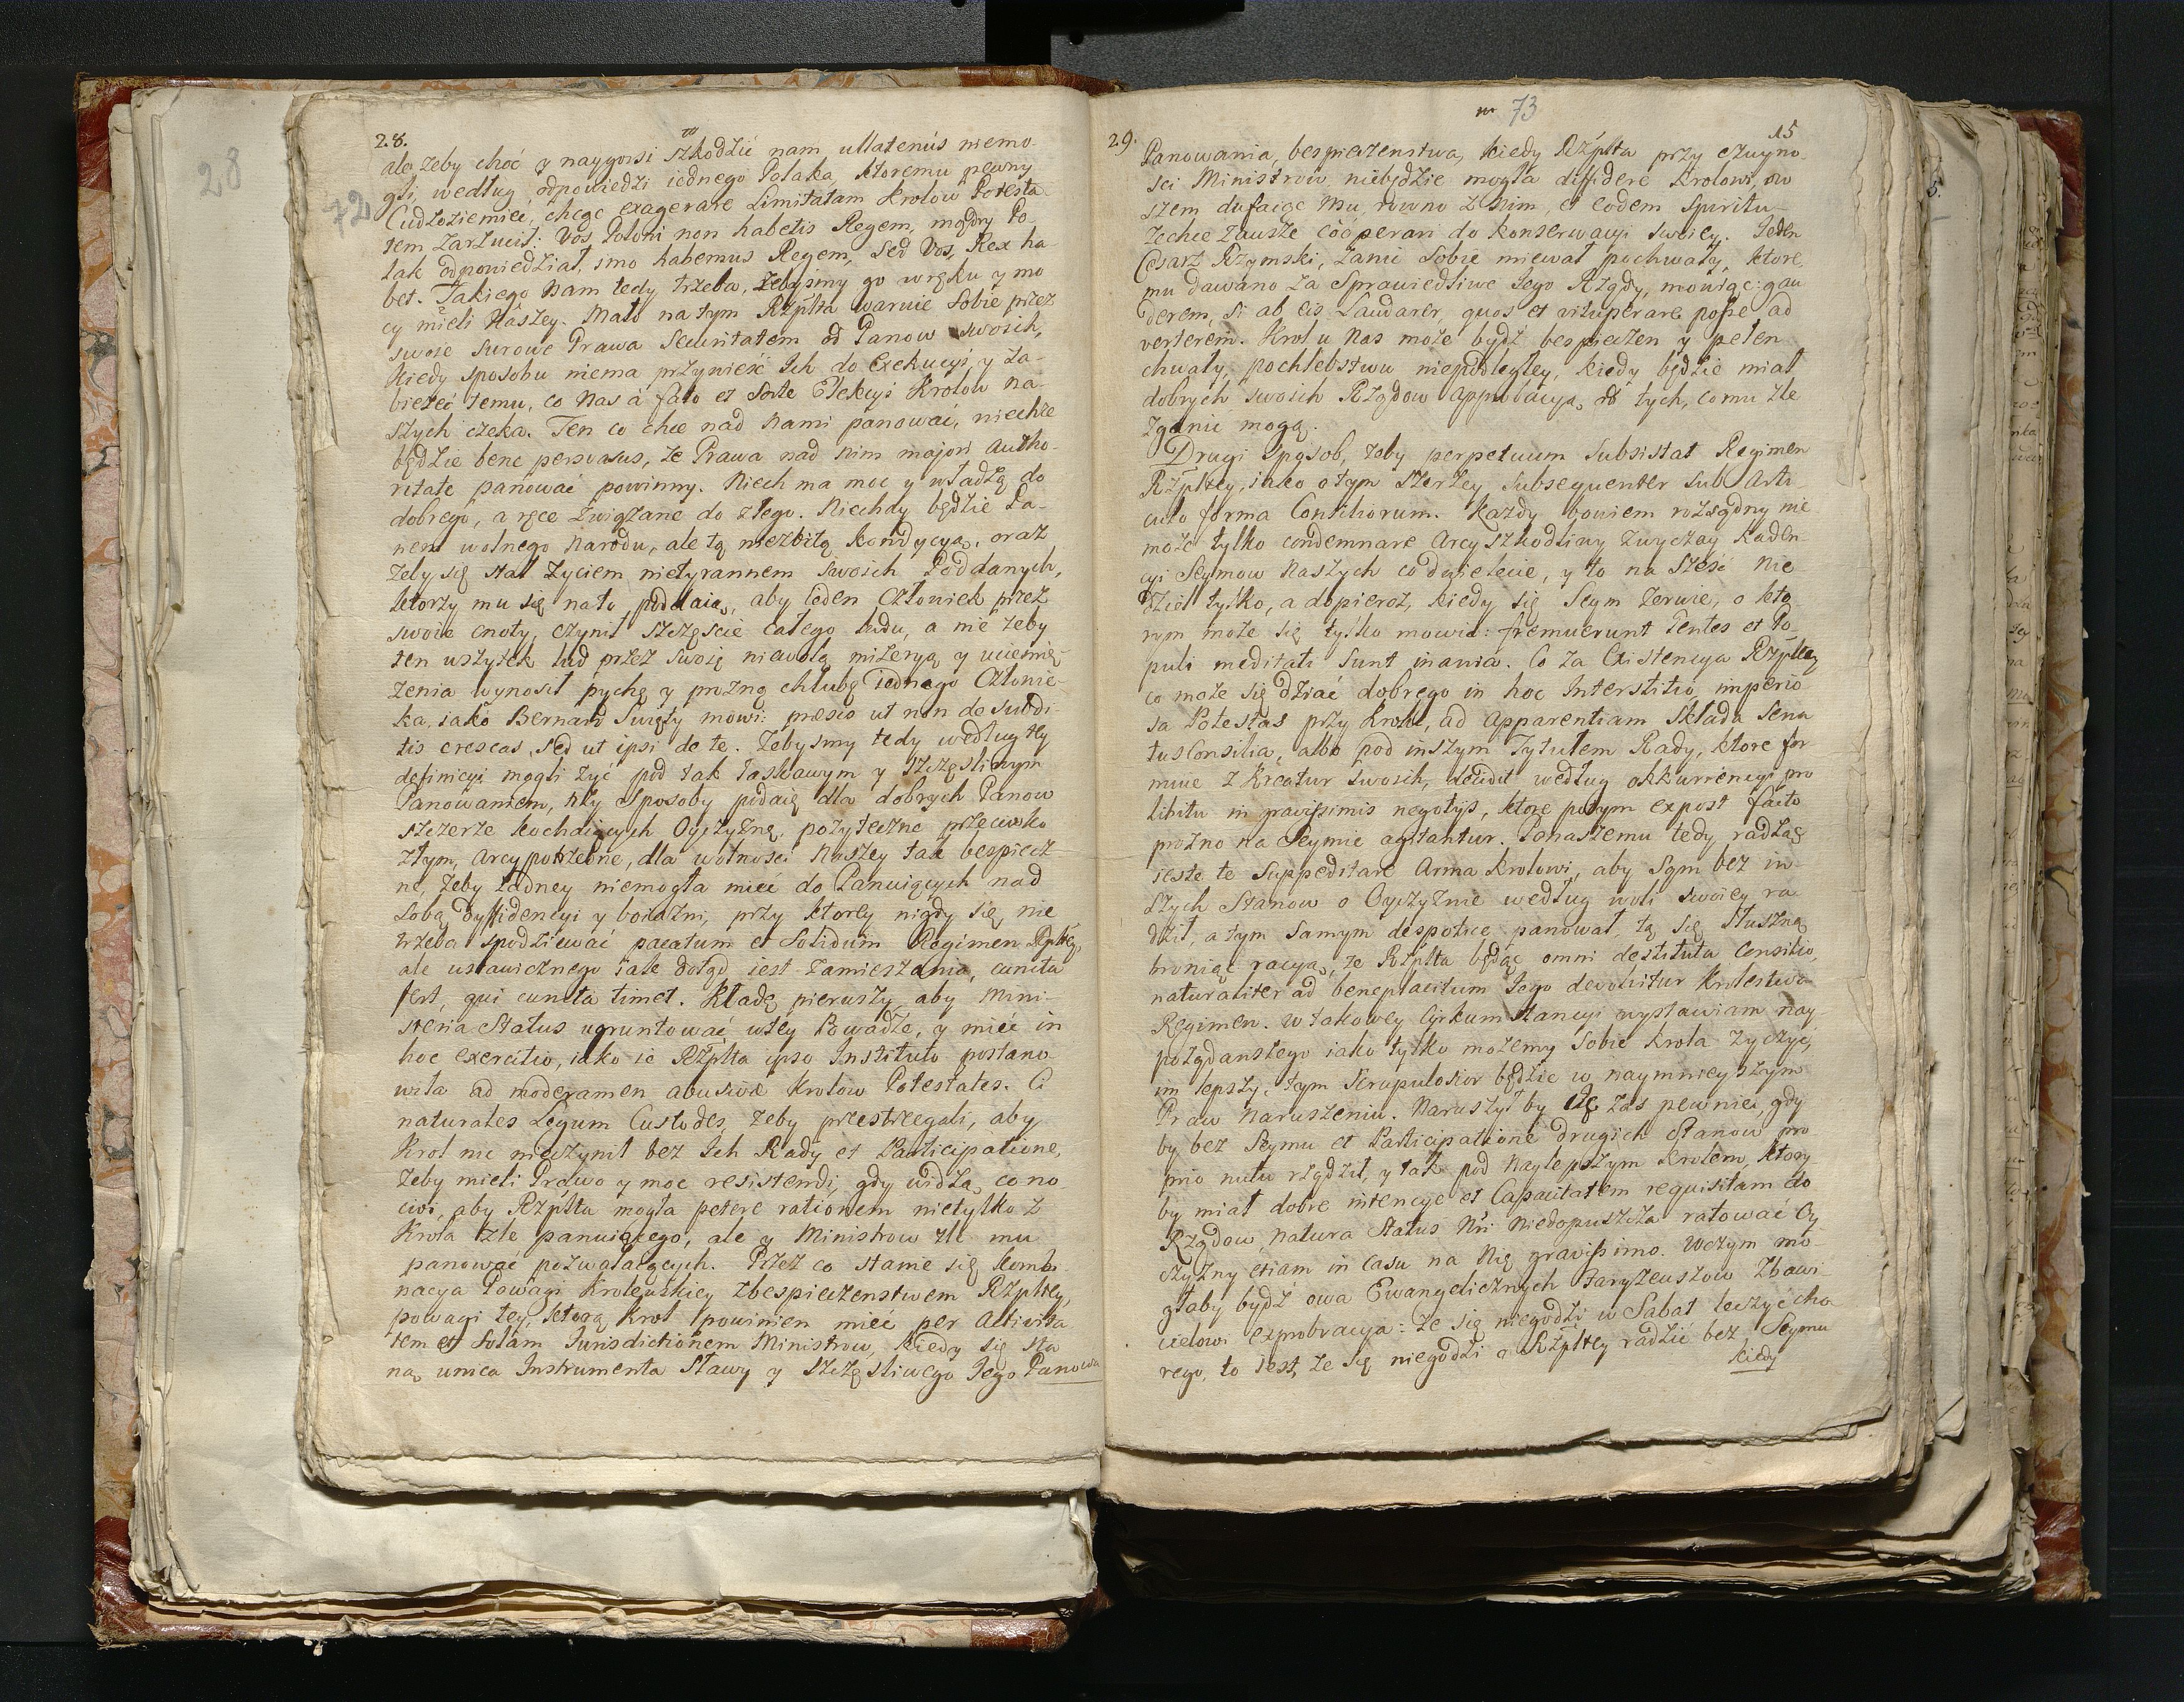 28
72
28.
ale żeby choć y naygorsi szkodzić nam ullatenus niemo-
gli, według odpowiedzi iednego Polaka, ktoremu pewny
Cudzoziemiec, chcąc exagerare Limitatam Krolow Potesta-
tem zarzucił: Vos Poloni non habetis Regem, mądry Po-
lak odpowiedział, imo habemus Regem, sed Vos, Rex ha-
bet. Takiego Nam tedy trzeba, żebyśmy go w ręku y mo-
cy mieli Naszey. Mało na tym Rzplta waruie sobie przez
swoie surowe Prawa Securitatem od Panow swoich,
kiedy sposobu niema przynieść Ich do Exekucyi, y za-
bieżeć temu, co Nas à fato et Sorte Elekcyi Krolow na-
szych czeka. Ten co chce nad Nami panować, niechże
będzie bene persvasus, że Prawa nad nim majori Autho-
ritate panować powinny. Niech ma moc y władzą do
dobrego, a ręce związane do złego. Niechay będzie Pa-
nem wolnego Narodu, ale tą niezbitą kondycyą, oraz
żeby się stał życiem nietyrannem swoich Poddanych,
ktorzy mu się na to poddaią, aby ieden Człowiek przez
swoie cnoty, czynił szczęscie całego ludu, a nie żeby
ten wszytek lud przez swoię niewolą mizeryą y uciemię-
żenia wynosił pychę y prożną chlubę iednego Człowie-
ka, iako Bernard Swięty mowi: præsto ut non de subdi-
tis crescas, sed ut ipsi de te. Żebysmy tedy według tey
definicyi mogli żyć pod tak łaskawym y szczęsliwym
Panowaniem, te sposoby podaię dla dobrych Panow
szczerze kochaiących Oyczyznę, pożyteczne przeciwko
złym, arcypotrzebne, dla wolności Naszey tak bespiecz-
ne, żeby żadney niemogła mieć do Panuiących nad
sobą dyffidencyi y boiaźni, przy ktorey nigdy się nie
trzeba spodziewać pacatum et Solidum Regimen Rpltey,
ale ustawicznego iakie dotąd iest zamieszania, cuncta
fert, qui cuncta timet. Kładę pierwszy aby Mini-
steria Status ugruntować w tey Powadze, y mieć in
hoc exercitio, iako ie Rzplta ipso Instituto postano-
wiła ad moderamen abusivæ Krolow Potestates. Ci
naturales Legum Custodes, żeby przestrzegali, aby
Krol nic nieczynił bez Ich Rady et Participatione,
żeby mieli Prawo y moc resistendi, gdy widzą co no-
civi, aby Rzplta mogła petere rationem nietylko z
Krola źle panuiącego, ale y Ministrow źle mu
panować pozwalaących. Przez co stanie się kombi-
nacya Powagi Krolewskiey z bespieczenstwem Rzpltey,
powagi tey, ktorą Krol powinien mieć per Activita-
tem et Solam Jurisdictionem Ministrow, kiedy się sta-
ną unica Instrumenta Sławy y szczęsliwego Jego Panowa
73
29.
15
Panowania, bespieczenstwa, kiedy Rzplta przy czuyno-
sci Ministrow, niebędzie mogła diffidere Krolowi, ow-
szem dufaiąc Mu, rowno z Nim, et eodem Spiritu
zechce zawsze coóperari do konserwacyi swoiey. Jeden
Cesarz Rzymski, zanic sobie miewał pochwały, ktore
mu dawano za Sprawiedliwe Jego Rządy, mowiąc: gau-
derem, si ab eis Laudarer, quos et vituperare posse ad-
verterem. Krol u Nas może bydź bespieczen y pełen
chwały, pochlebstwu niepodległey, kiedy będzie miał
dobrych swoich Rządow approbacyą, od tych, co mu złe
zganić mogą.
Drugi sposob, żeby perpetuum Subsistat Regimen
Rzpltey, iako o tym szerzey Subsequenter Sub Arti-
culo forma Consiliorum. Każdy bowiem rozsądny nie
może tylko condemnare Arcyszkodliwy zwyczay kaden-
cyi Seymow Naszych co dwie lecie, y to na sześć nie-
dziel tylko, a dopieroż, kiedy się Seym zerwie, o kto-
rym może się tylko mowić: fremuerunt Gentes et Po-
puli meditati sunt inania. Co za Existencya Rzpltey
co może się dziać dobrego in hoc Interstitio, imperio-
sa Potestas przy Krolu, ad apparentiam składa Sena-
tus Consilia, albo pod inszym Tytułem Rady, ktore for-
muie z Kreatur swoich, decidit według okkurrencyi pro
libitu in gravissimis negotiis, ktore potym expost facto
pożno na Seymie agitantur. Ponaszemu tedy radząc
ieste te Suppeditare Arma Krolowi, aby Sam bez in-
szych Stanow o Oyczyźnie według woli swoiey ra-
dził a tym samym despotice panował, tą się słuszną
broniąc racyą, że Rzplta będąc omni destituta Consilio,
naturaliter ad beneplacitum Jego devolvitur Krolestwa
Regimen. W takowey cyrkumstancyi wystawiam nay-
pożądanszego iako tylko możemy Sobie Krola życzyć,
im lepszy, tym skrupulosior będzie w naymnieyszym
Praw Naruszeniu. Naruszył by Ie zas pewnie, gdy
by bez Seymu et Participatione drugich Stanow pro
prio nutu rządził, y tak pod Naylepszym Krolem, ktory
by miał dobre intencye et Capacitatem requisitam do
Rządow, natura Status Nri Niedopuszcza ratować Oy-
czyzny etiam in casu na Nię gravissimo. Wczym mo-
głaby bydź owa Ewangelicznych Faryzeuszow Zbawi-
cielowi exprobracya: że się niegodzi w Sabat leczyć cho-
rego, to iest, że się niegodzi o Rzpltey radzić bez Seymu
kiedy